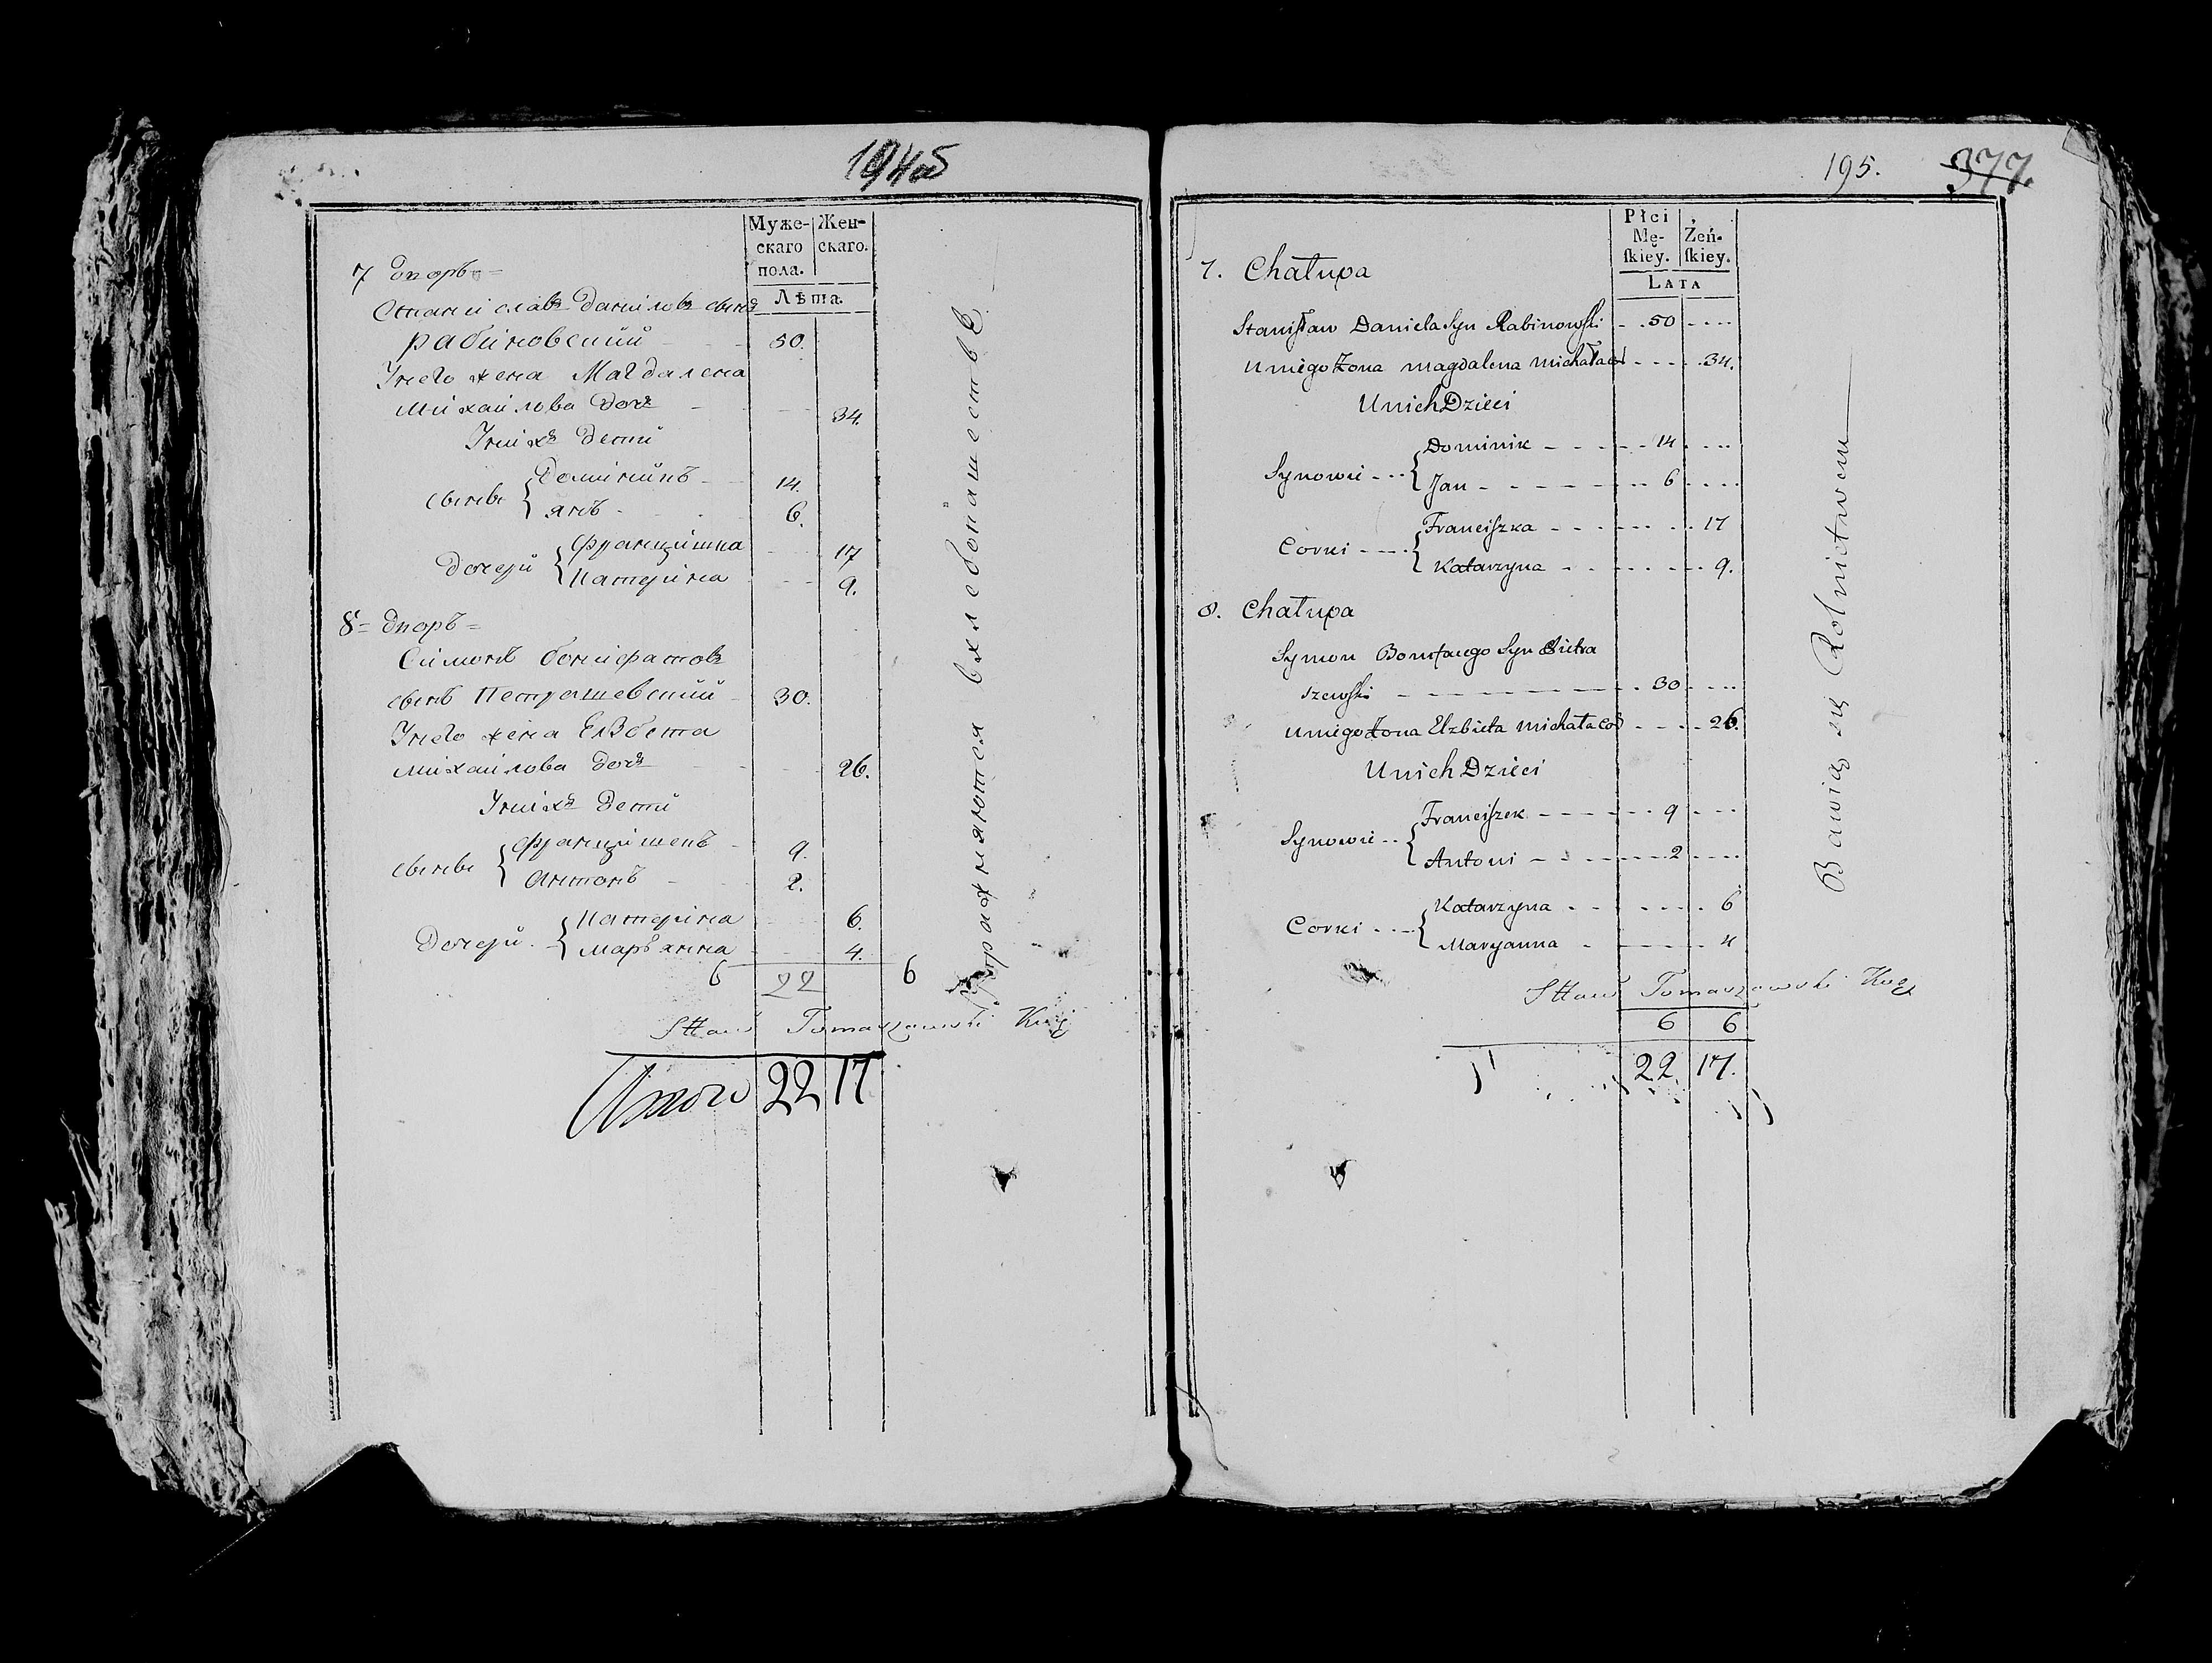 194об
Муже-
скаго
пола.
Жен-
скаго.
Лѣта.
7 дворъ =
Станиславъ Даниловъ сынъ
Рабиновский 50.
У него жена Магдалена
Михайлова дочь 34.
У нихъ дети
сынвы { Доминикъ 14.
Янъ 6.
Дочери { Францишка 17
Катерина 9.
8 = дворъ =
Симонъ Бонифатовъ
сынъ Петрашевский 30.
У него жена Елзбета
Михайлова дочь 26.
У нихъ дети
сынвы { Францишекъ 9.
Антонъ 2.
Дочери { Катерина 6.
Марьянна 4.
6 22 6
Sttaw Tomaszewski Kog
Итого 22 17
Упражняются в хлебопашестве
195. 377.
Płci
Mę-
skiey.
Żeń-
skiey.
LATA
7. Chałupa
Stanisław Daniela Syn Rabinowski 50
U niego Żona Magdalena Michała Cor 34.
U nich Dzieci
Synowie { Dominik 14
Jan 6
Corki { Franciszka 17
Katarzyna 9.
8. Chałupa
Symon Bonifacego Syn Pietra
szewski 30
U niego Żona Elzbieta Michała Cor 26.
U nich Dzieci
Synowie { Franciszek 9
Antoni 2
Corki { Katarzyna 6
Maryanna 4
Sttaw Tomaszewski Kog
6 6
22 17.
Bawią się Rolnictwem